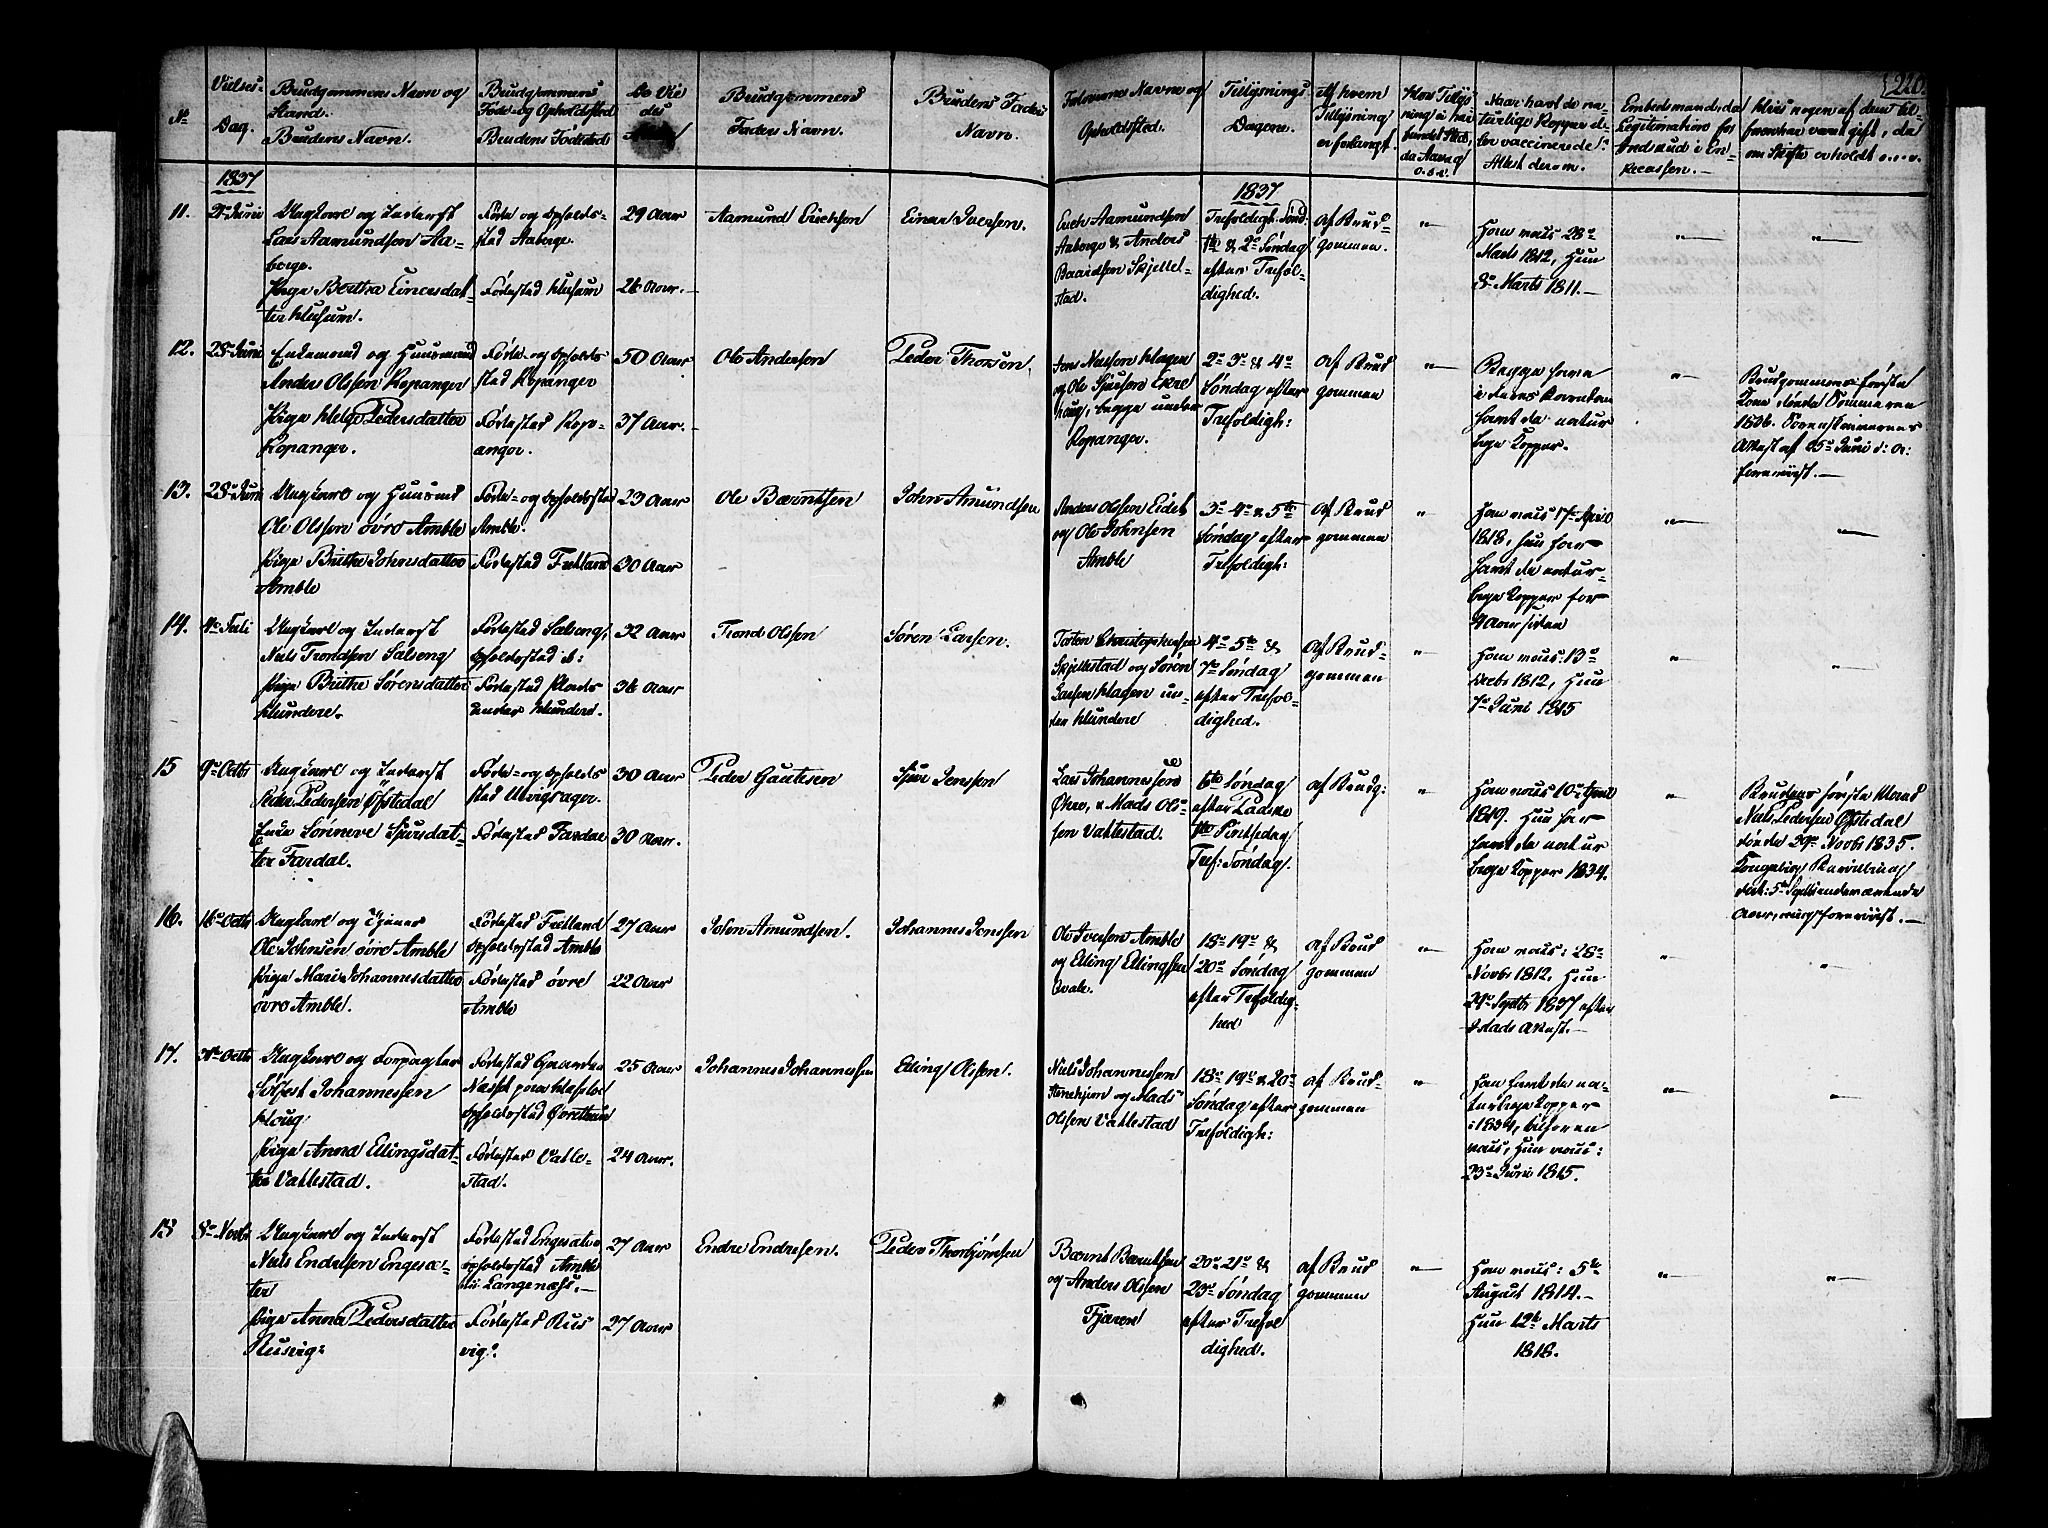 220.
No
Vielses-
Dag.
Brudgommens Navn og
Stand.
Brudens Navn.
Brudgommens
Føde- og Opholdsted
Brudens Fødested
de Vie
des
Brudgommens
Faders Navn.
Brudens Faders
Navn.
Forlovernes Navne og
Opholdsted.
Tillysnings
Dagene.
Af hvem
Tillysning
er forlangt.
Naar havt de na-
turlige Kopper el-
ler vaccinerede?
Attest derom.
Hvis nogen af dem til-
forn have været gift, da
om Skifte er holdt o.s.v.
1837
1837
11.
21de Juni
Ungkarl og Inderst
Lars Aamundsen Aa-
berge.
Pige Bertha Einersdat-
ter Husum.
Føde og Opholds-
sted Aaberge.
Fødested Husum
29 Aar
26 Aar.
Aamund Erichsen
Einer Iversen.
Erich Aamundsen
Aaberge & Anders
Baardsen Skjellel-
stad.
Trefoldigh: Sønd:
1te & 2den Søndag
efter Trefol-
dighed.
af Brud-
gommen.
"
Ham vacs 28de
Marts 1812, Hun
8de Marts 1811.
"
"
12.
28de Juni
Enkemand og Huusmand
Anders Olssen Kopanger
Pige Helge Pedersdatter
Kopanger.
Føde- og Opholds
sted Kopanger
Fødested Kop-
anger.
50 Aar
37 Aar.
Ole Andersen
Peder Thorsen.
Jens Nielsen Hagen
og Ole Sjursen Ekre
haug, begge under
Kopanger.
2den 3de & 4de
Søndag efter
Trefoldigh:
af Brud
gommen
"
Begge have
i deres Barndom
havt de natur
lige Kopper.
"
Brudgommens første
Kone døde Sommeren
1836. Sorenskriverens
Attest af 25de Juni d: A:
foreviist.
13.
28de Juni
Ungkarl og Huusmd
Ole Olssen øvre Amble
Pige Brithe Johnsdatter
Amble
Føde- og Opholdssted
Amble.
Fødested Fretland
23 Aar
30 Aar
Ole Berntsen
John Amundsen
Anders Olssen Eidet
og Ole Johnsen
Amble
3de 4de & 5te
Søndag efter
Trefoldigh:
af Brud
gommen
"
Ham vacs 17de April
1818, hun har
havt de natur-
lige Kopper for
9 Aar siden
"
"
14.
4de Juli
Ungkarl og Inderst
Niels Trondsen Sælseng
Pige Brithe Sørensdatter
Hundere.
Fødested Sælseng,
Opholdssted d:
Fødested Plads
under Hundere.
32 Aar
36 Aar
Trond Olssen
Søren Larsen.
Torsten Christophersen
Skjellestad og Søren
Larsen Hagen un-
der Hundere
4de 5te &
7de Søndag
efter Trefol-
dighed.
af Brud-
gommen
"
Ham vacs: 13de
Decbr 1812, Hun
7de Juni 1815
"
"
15
9de Octbr
Ungkarl og Inderst
Peder Pedersen Øfstedal
Enke Sørineve Sjursdat-
ter Fardal.
Føde- og Opholds
sted Utvigsager.
Fødested Fardal
30 Aar
30 Aar.
Peder Gautesen
Sjur Jenssen
Lars Johannessen
Øhre, & Mads Ol-
sen Vallestad.
6te Søndag
efter Paaske
1te Pintsedag
Tref: Søndag.
af Brudg:
"
Ham vacs 10de April
1819. Hun har
havt de natur
lige Kopper 1834.
"
Brudens første Mand
Niels Pedersen Øfstedal
døde 29de Novbr 1835.
Kongelig Bevilling
dat: 5te Septbr indeværende
Aar, er mig foreviist.
16.
16de Octbr
Ungkarl og Tjener
Ole Johnsen øvre Amble
Pige Mari Johannesdatter
øvre Amble.
Fødested Fretland
Opholdssted Amble
Fødested øvre
Amble
27 Aar
22 Aar
John Amundsen.
Johannes Jenssen
Ole Iversen Amble
og Elling Ellingsen
Qvale.
18de 19de &
20de Søndag
efter Trefoldig-
hed
af Brud
gommen
"
Ham vacs: 28de
Novbr 1812, Hun
29de Septbr 1837 efter
Attest.
"
"
17.
31te Octbr
Ungkarl og Forpagter
Sølfest Johannessen
Houg
Pige Anna Ellingsdat-
ter Vallestad.
Fødested Gaarden
Næsset
Opholdssted
Fødested Valle-
stad.
25 Aar
24 Aar.
Johannes Johannessen
Elling Olssen.
Niels Johannessen
Stenehjem og Mads
Olssen Vallestad
18de 19de & 20de
Søndag efter
Trefoldigh:
af Brud-
gommen
"
Ham havt de na-
turlige Kopper
i 1834,
vacs, Hun vacs:
23de Juni 1815.
"
"
18
8de Novbr
Ungkarl og Inderst
Niels Endresen Engesæ-
ter
Pige Anna Pedersdatter
Rusvig:
Fødested Engesæter
Opholdssted Amble
Fødested Rus
vig:
27 Aar
27 Aar
Endre Endresen.
Peder Thorbjørnsen
Bernt Berntsen
og Anders Olssen
Fjæren
20de 21de &
23de Søndag
efter Trefol
dighed.
af Brud
gommen
"
Ham vacs: 5te
August 1814.
Hun 12te Marts
1818.
"
"